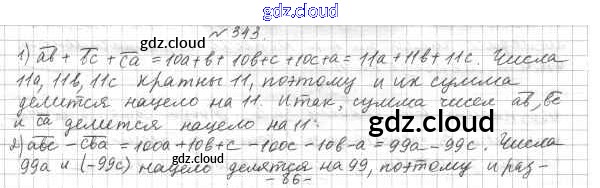 gdz.cloud
№ 343.
gdz.cloud
1) ab + bc + ca = 10a+b+10b+c+10c+a = 11a+11b+11c. Числа
11a, 11b, 11c кратны 11, поэтому и их сумма
делится нацело на 11. Итак, сумма чисел ab, bc
и ca делится нацело на 11.
gdz.cloud
gdz.cloud
2) abc - cba = 100a+10b+c-100c-10b-a = 99a-99c. Числа
99a и (-99c) нацело делятся на 99, поэтому и раз-
- 86 -
gdz.cloud